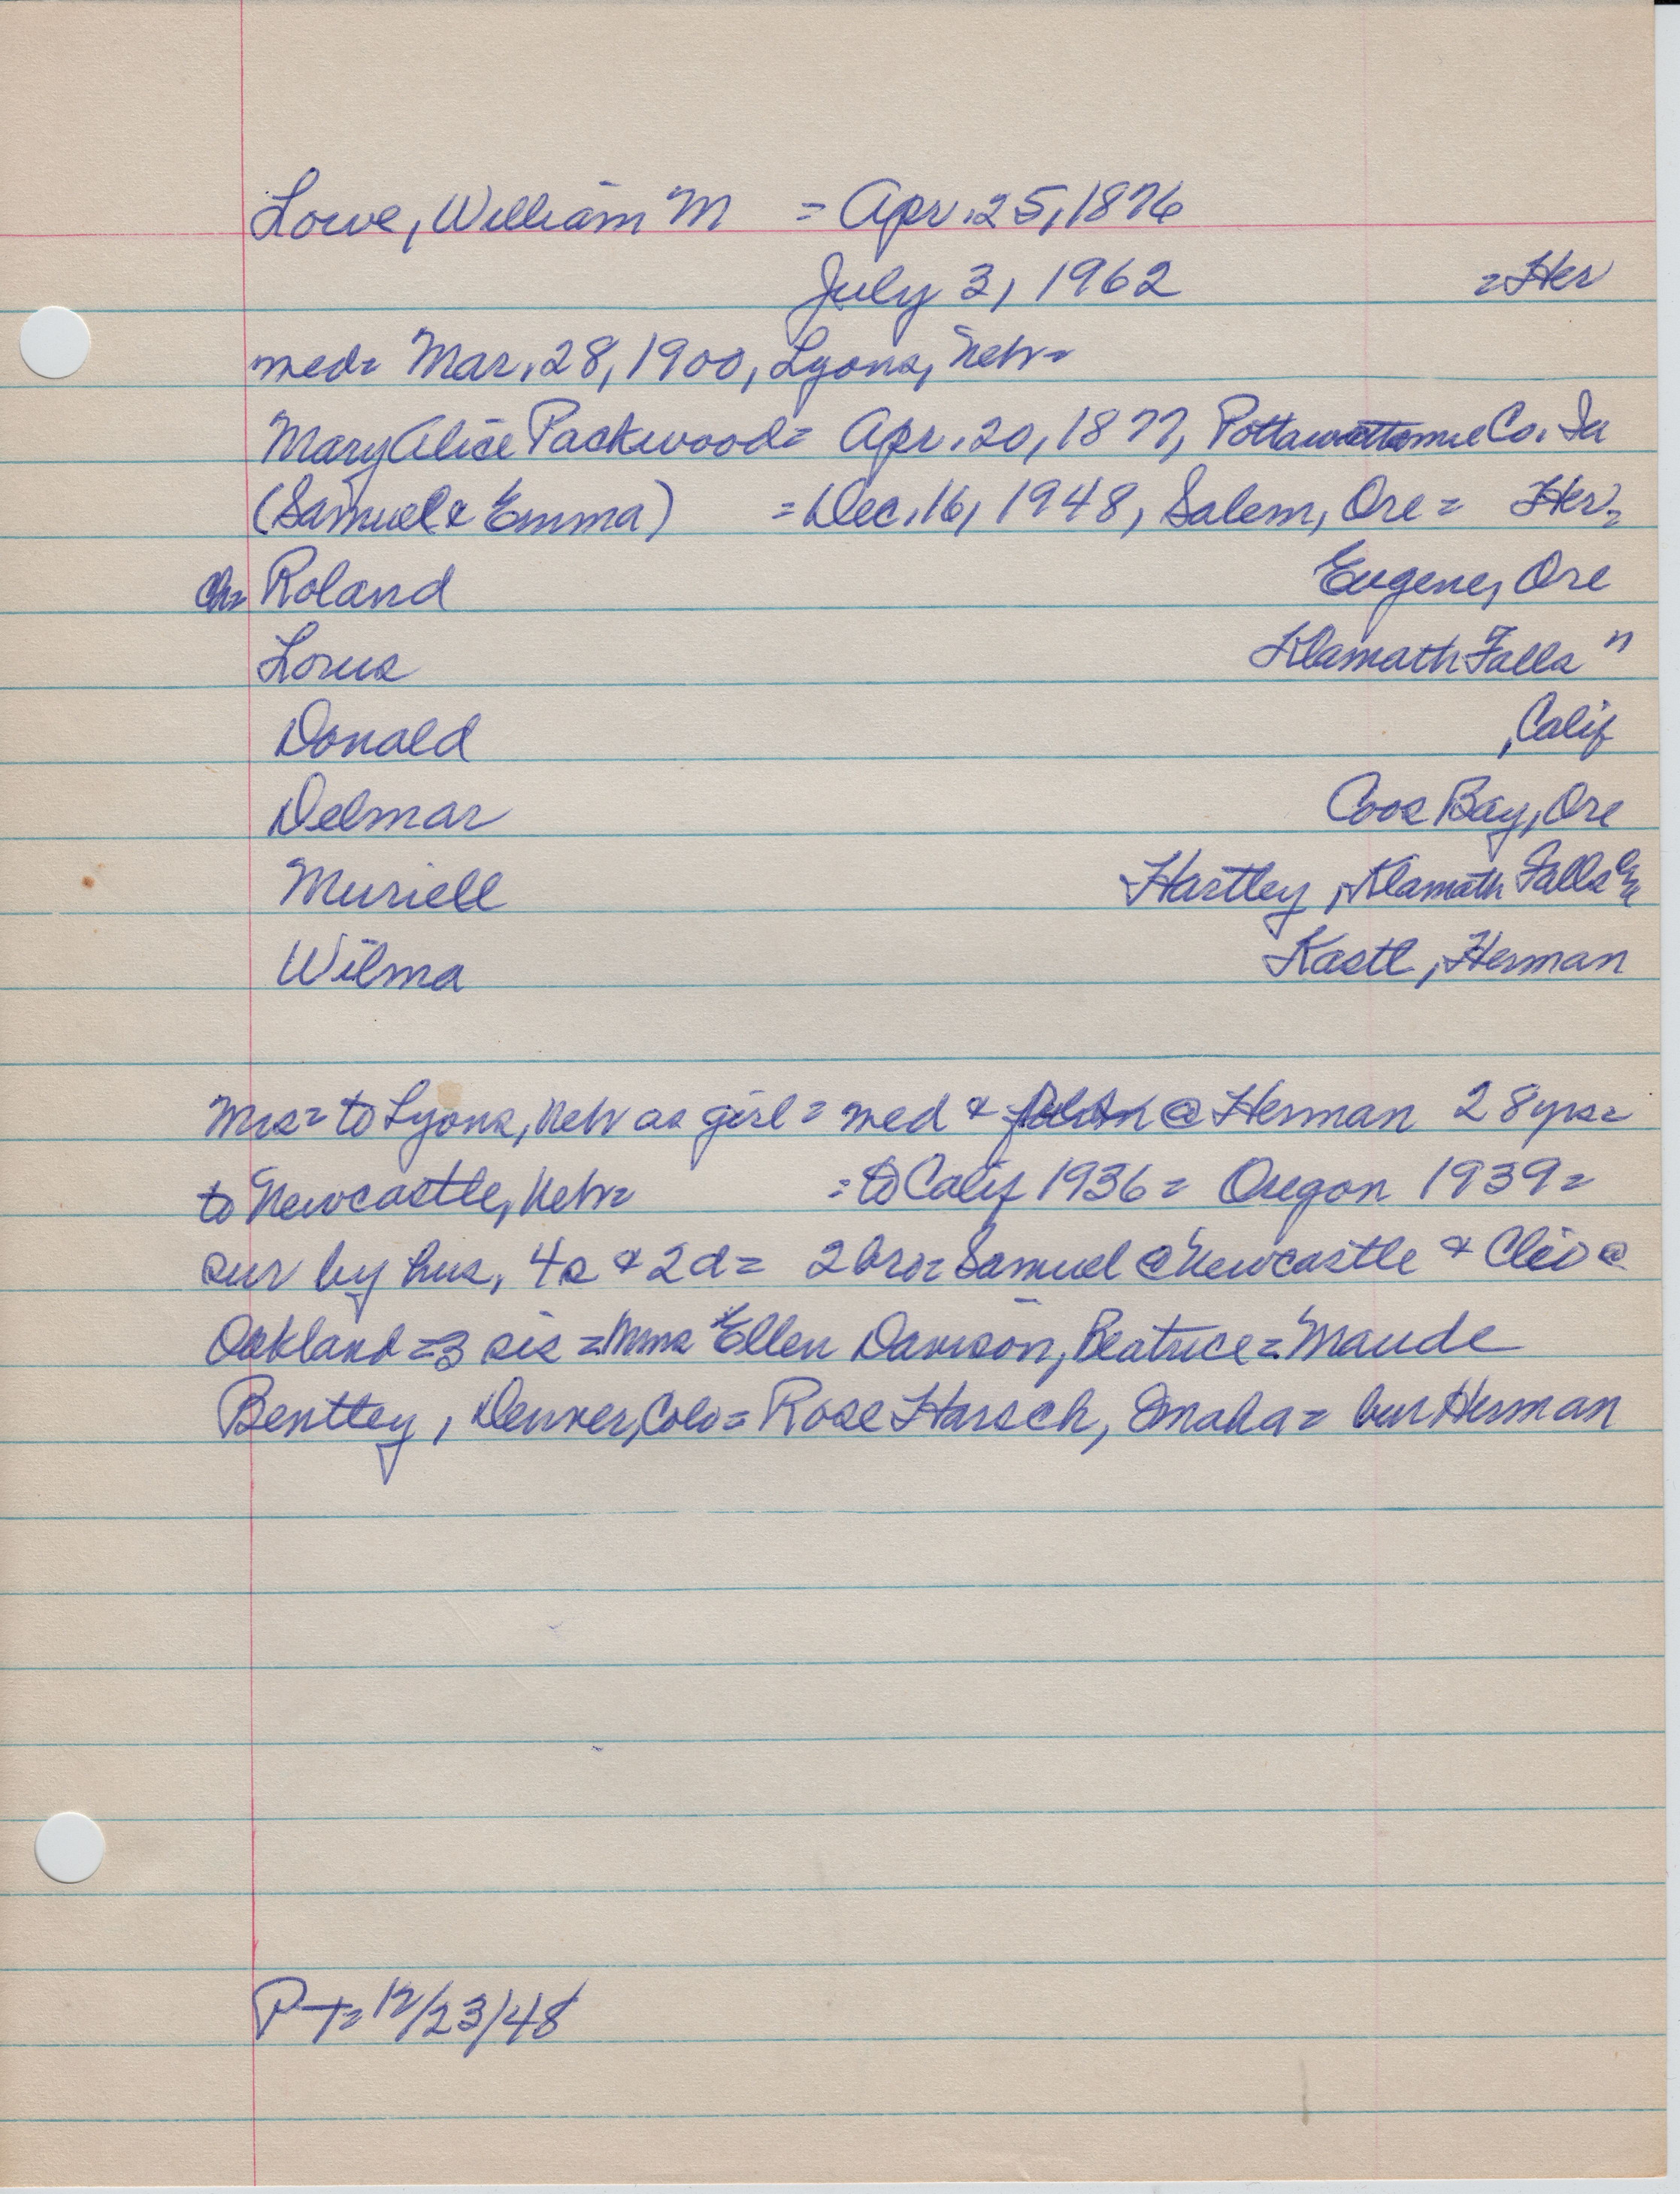 Lowe, William M = Apr. 25, 1876
July 3, 1962 = Her
med= Mar. 28, 1900, Lyons, Nebr=
Mary Alice Packwood= Apr. 20, 1877, Pottawattomie Co. Ia
(Samuel & Emma) = Dec. 16, 1948, Salem, Ore = Her=
Ch= Roland Eugene, Ore
Lorus Klamath Falls "
Donald , Calif
Delmar Coos Bay, Ore
Muriell Hartley, Klamath Falls
Wilma Kastl, Herman
Mrs= to Lyons, Nebr as girl = med & @ Herman 28 yrs=
to Newcastle, Nebr= = to Calif 1936 = Oregon 1939 =
sur by hus, 4s & 2d = 2 bro= Samuel @ Newcastle & Cleo @
Oakland = 3 sis = Mms Ellen Davison, Beatrice = Maude
Benttey, Denver, Colo = Rose Harsch, Omaha = bur Herman
PT= 12/23/48